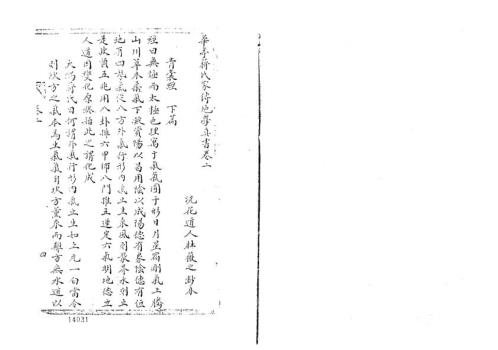 華亭蔣氏家傳地學真書卷上
浣花道人杜薇之鈔本
青囊經 下篇
經曰無極而太極也理寓于氣氣囿于形日月星宿剛氣上騰
山川草木柔氣下凝資陽以昌用陰以成陽德有象陰德有位
地有四勢氣從八方外氣行形內氣止生乘風則散界水則止
是故順五兆用八卦排六甲布八門推五運定六氣明地德立
人道因變化原終始此之謂化成
大鴻蔣氏曰何謂外氣行形內氣止生如上元一白當令
則坎方之氣本為生氣氣自坎方來而離方無水道以
卷上
四
14031